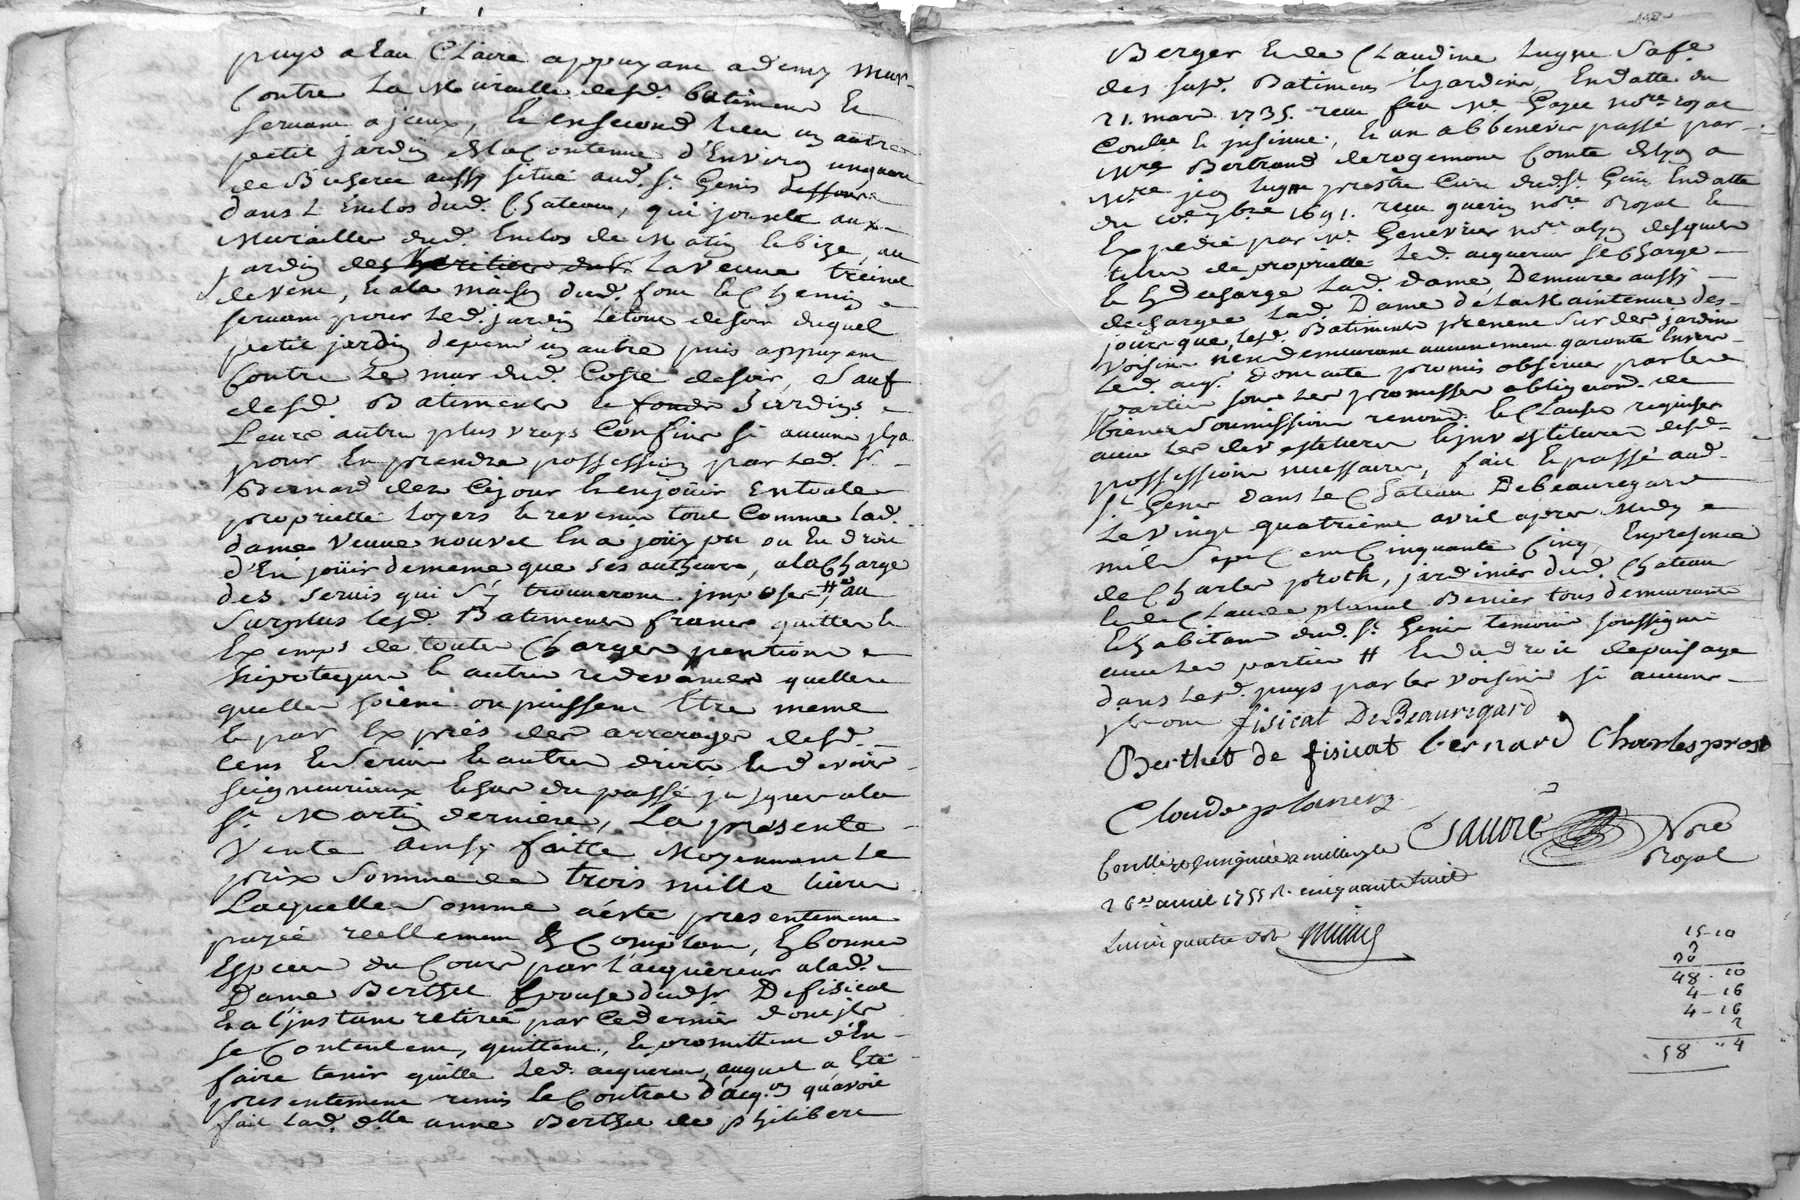 puys a Eau Claire appuyant a demy mur
Contre La Muraille desd. batimens Et
servant a jceux, Et en second Lieu un autre
petit jardin de la Contenue d'Environ un quart
de Bicheree aussy situé aud. St. Genis
dans L'Enclos dud. Chateau, qui jouxte aux
Murailles dud. Enclos de Matin Et bize, au
jardin des heritiers dud. La veuve
de vent, Et a la maison dud. four Et Chemin
servant pour Led. jardin Letout de soir duquel
petit jardin depend un autre puis appuyant
Contre Le mur dud. Costé de soir, Sauf
desd. Batiments Et fonds Jardins
Leurs autres plus vrays Confins si aucuns jl y a
pour En prendre possession par Led. Sr.
Bernard des Cejour Et en joüir En toute
proprietté Loyers Et revenus tout Comme Lad.
dame Veuve nouvel En a joüy pu ou Eu droit
d'En joüir de meme que ses autheurs, a la Charge
des servis qui s'y trouveront jmposés, # au
Surplus Lesd. Batiments francs quittes Et
Exempts de toutes Charges pentions
hipoteques Et autres redevances quelles
quelles soient ou puissent Etre meme
Et par Exprés des arrerages desd.
Cens Et Servis Et autres droits Et devoirs
seigneuriaux Echus du passé jusques a la
St. Martin derniere, La présente
Vente ainsy faitte Moyennant Le
prix Somme de trois mille livres
Laquelle Somme a été presentement
payée reellement & Comptant, En bonnes
Especes du Cours par L'acquereur a lad.
Dame Berthet Epouse dud. Sr. De fisicat
Et a l'jnstant retirée par Ce dernier dont jls
se Contentent, quittent, Et promettent d'En
faire tenir quitte Led. acquereur, auquel a Eté
presentement remis Le Contrat d'acq.on qu'avoit
fait Lad. d.lle anne Berthet de philibert
Berger Et de Claudine Lugne Sa fe.
des susd. Batimens Et jardins, En datte du
21. mars 1735. recu feu Me. Gayet no.re royal
Conllé Et jnsinué; Et un abbenevis passé par
M.re Bertrand de rogemont Comte de Lyon a
M.re jean Lugne prestre Curé dud. St. Genis En datte
du 10.e 9bre 1691. recu guerin no.re Royal Et
Expedié par Me. Genevrier no.re a Lyon desquels
titres de proprietté Led. acquereur se Charge
Et En decharge Lad. dame, Demeure aussy
dechargée Lad. Dame de La Maintenue des
jours que Lesd. Batiments prenent Sur des jardins
Voisins n'en demeurant aucunement garante Envers
Led. acqr. Dont acte promis observer par les
parties sous Les promesses obligaons. de
biens Soumissions renoncons. Et Clauses requises
avec Les devestitures Et jnvestitures desd.
possessions necessaires, fait Et passé aud.
St. Genis dans Le Chateau De beauregard
Le Vingt quatrième avril apres Midy
mil Sept Cent Cinquante Cinq, En presence
de Charles prost, jardinier dud. Chateau
Et de Claude planus Benier tous demeurants
Et habitans dud. St. Genis temoins soussignés
avec Les parties # Et du droit de puisage
dans Led. puys par les voisins si aucuns
jls ont fisicat De Beauregard
Berthet de fisicat bernard Charles prost
Claude planus
Sauore Nore
Royal
Conllé Et jnsinué a millery le
26.e avril 1755 R. cinquante huit
Livres quatre sols
15-10
48-10
4-16
4-16
2
58-4